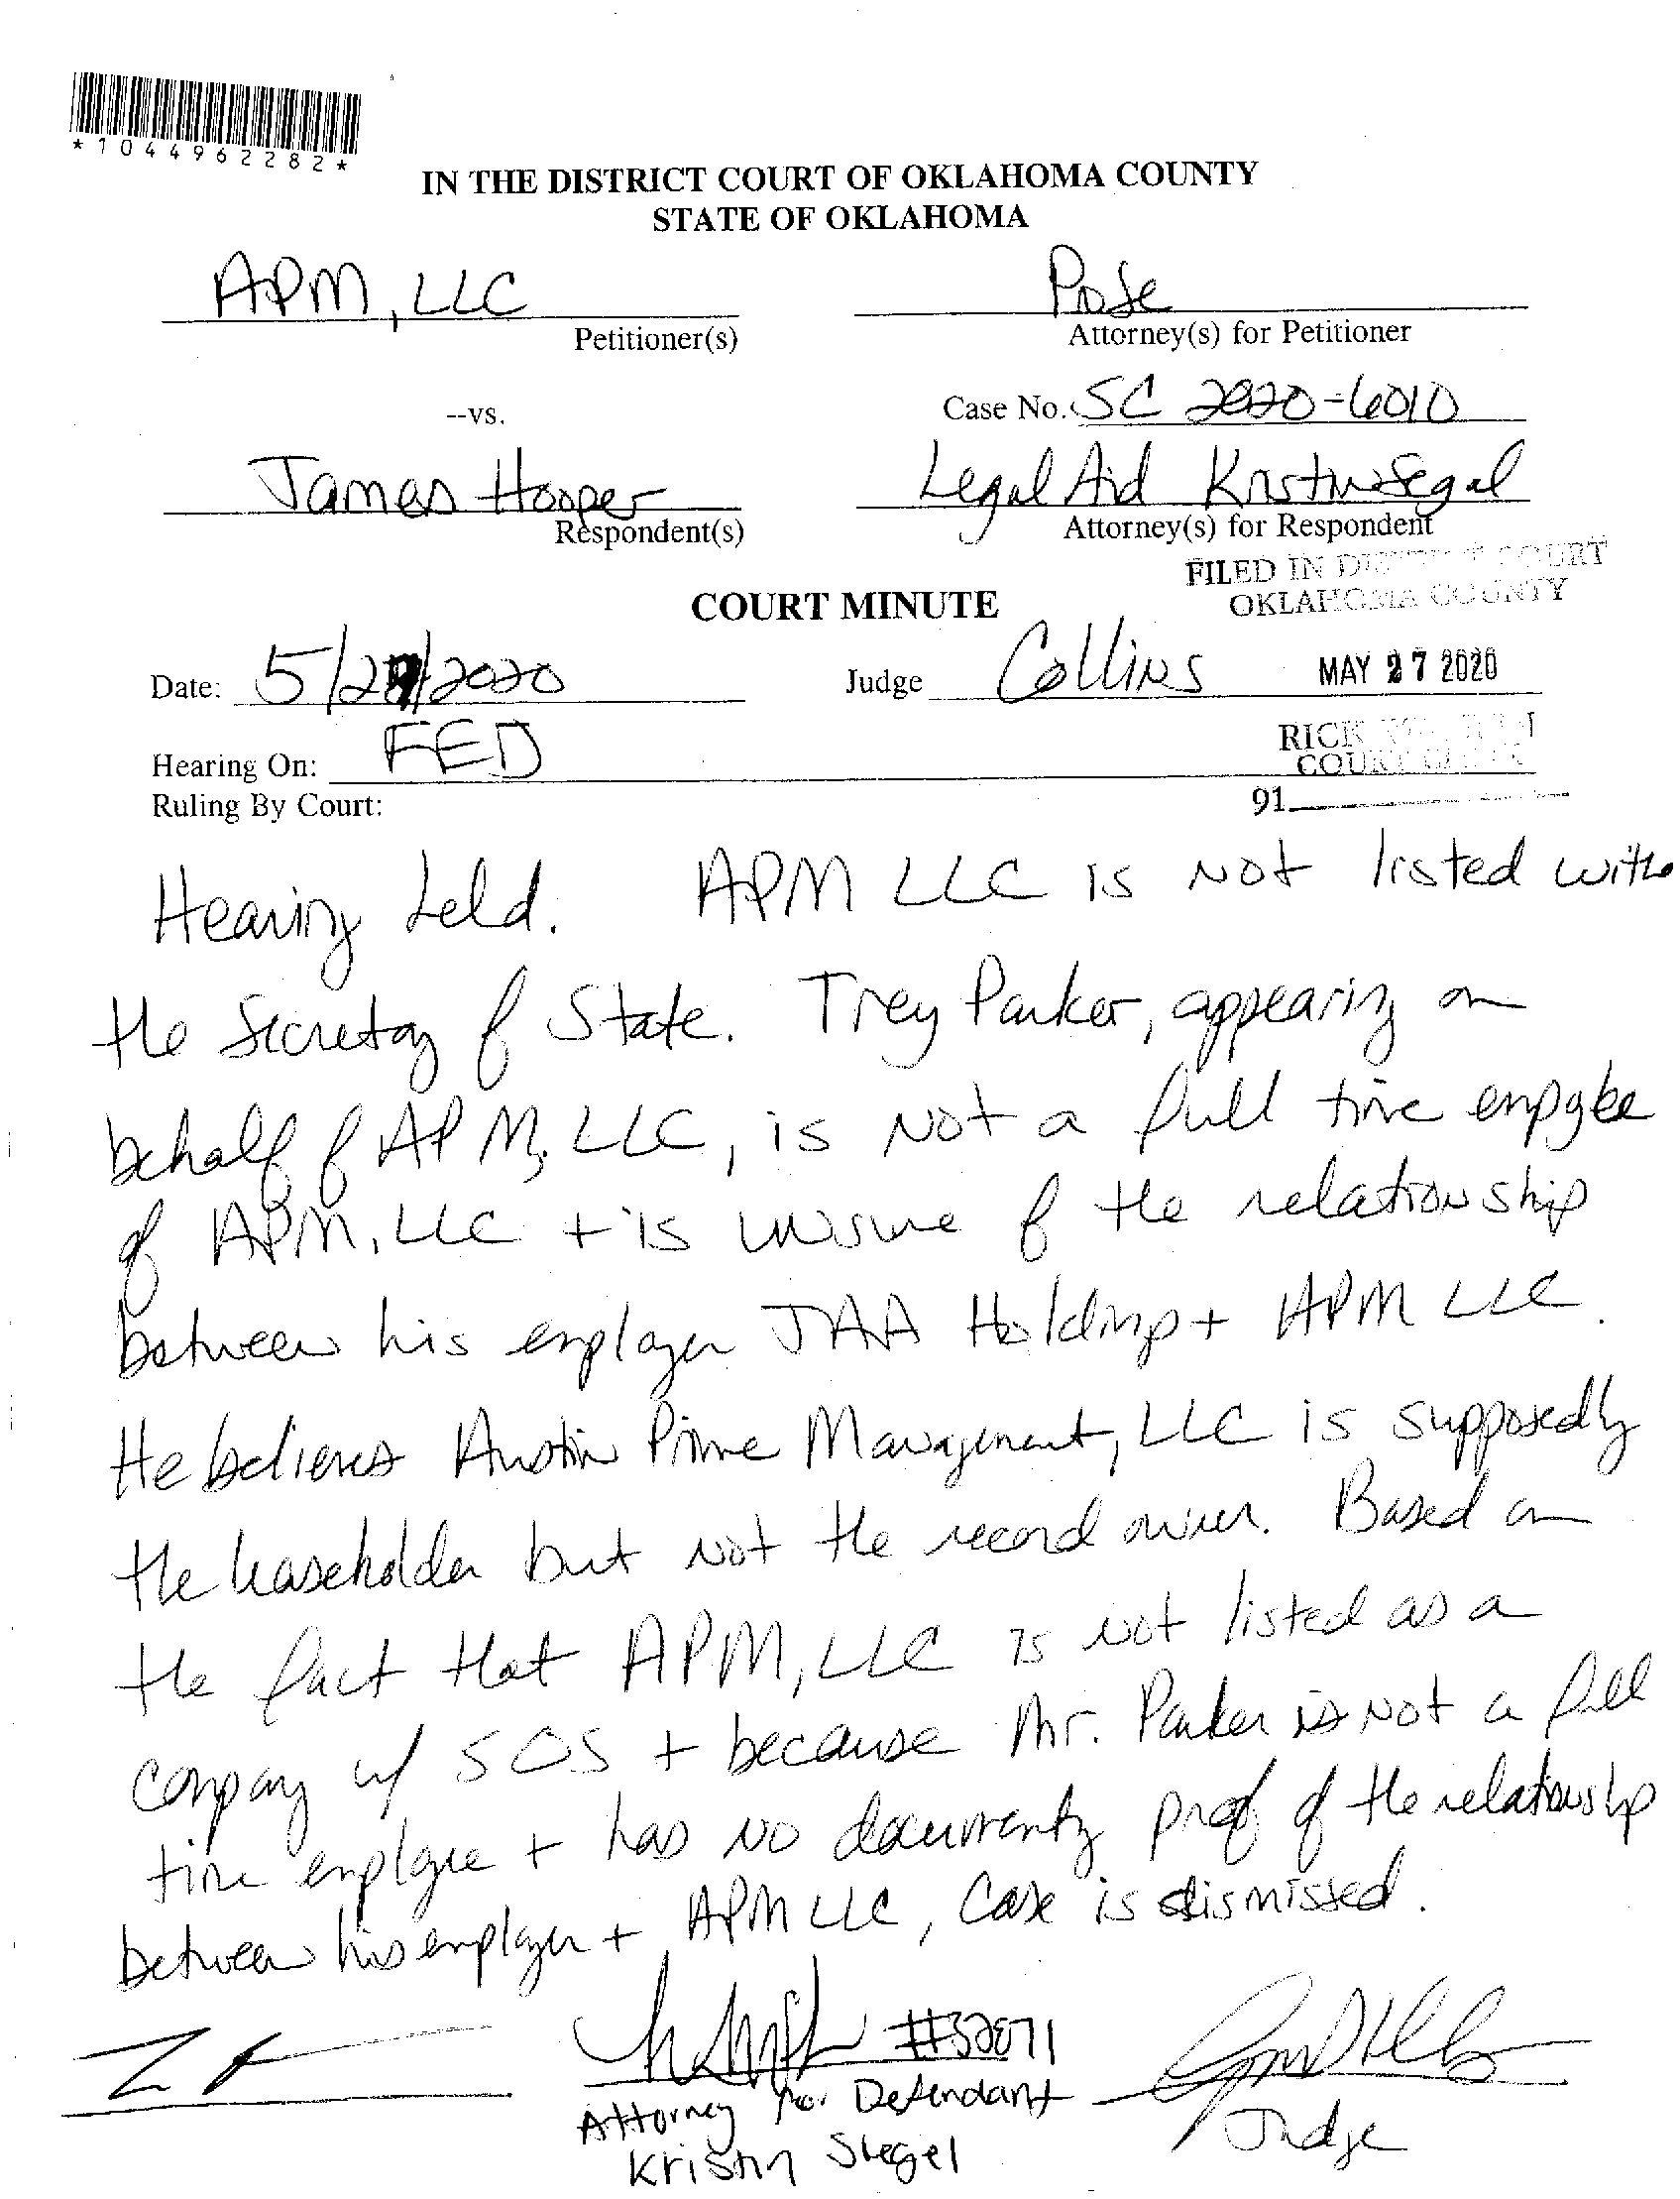 *1044962282*
IN THE DISTRICT COURT OF OKLAHOMA COUNTY
STATE OF OKLAHOMA
APM, LLC
Petitioner(s)
Pro Se
Attorney(s) for Petitioner
--vs.
Case No. SC 2020-6010
James Hooper
Respondent(s)
Legal Aid Kristin Segal
Attorney(s) for Respondent
FILED IN DISTRICT COURT
OKLAHOMA COUNTY
COURT MINUTE
Date: 5/27/2020
Judge Collins
MAY 27 2020
Hearing On: FED
RICK
COURT CLERK
Ruling By Court:
91
Hearing held. APM LLC is not listed with
the Secretary of State. Trey Parker, appearing on
behalf of APM, LLC, is not a full time employee
of APM, LLC + is unsure of the relationship
between his employer JAA Holdings + APM LLC.
He believes Austin Prime Management, LLC is supposedly
the leaseholder but not the record owner. Based on
the fact that APM, LLC is not listed as a
company w/ SOS + because Mr. Parker is not a full
time employee + has no documentary proof of the relationship
between his employer + APM LLC, Case is dismissed.
#32871
Attorney for Defendant
Kristin Siegel
Judge